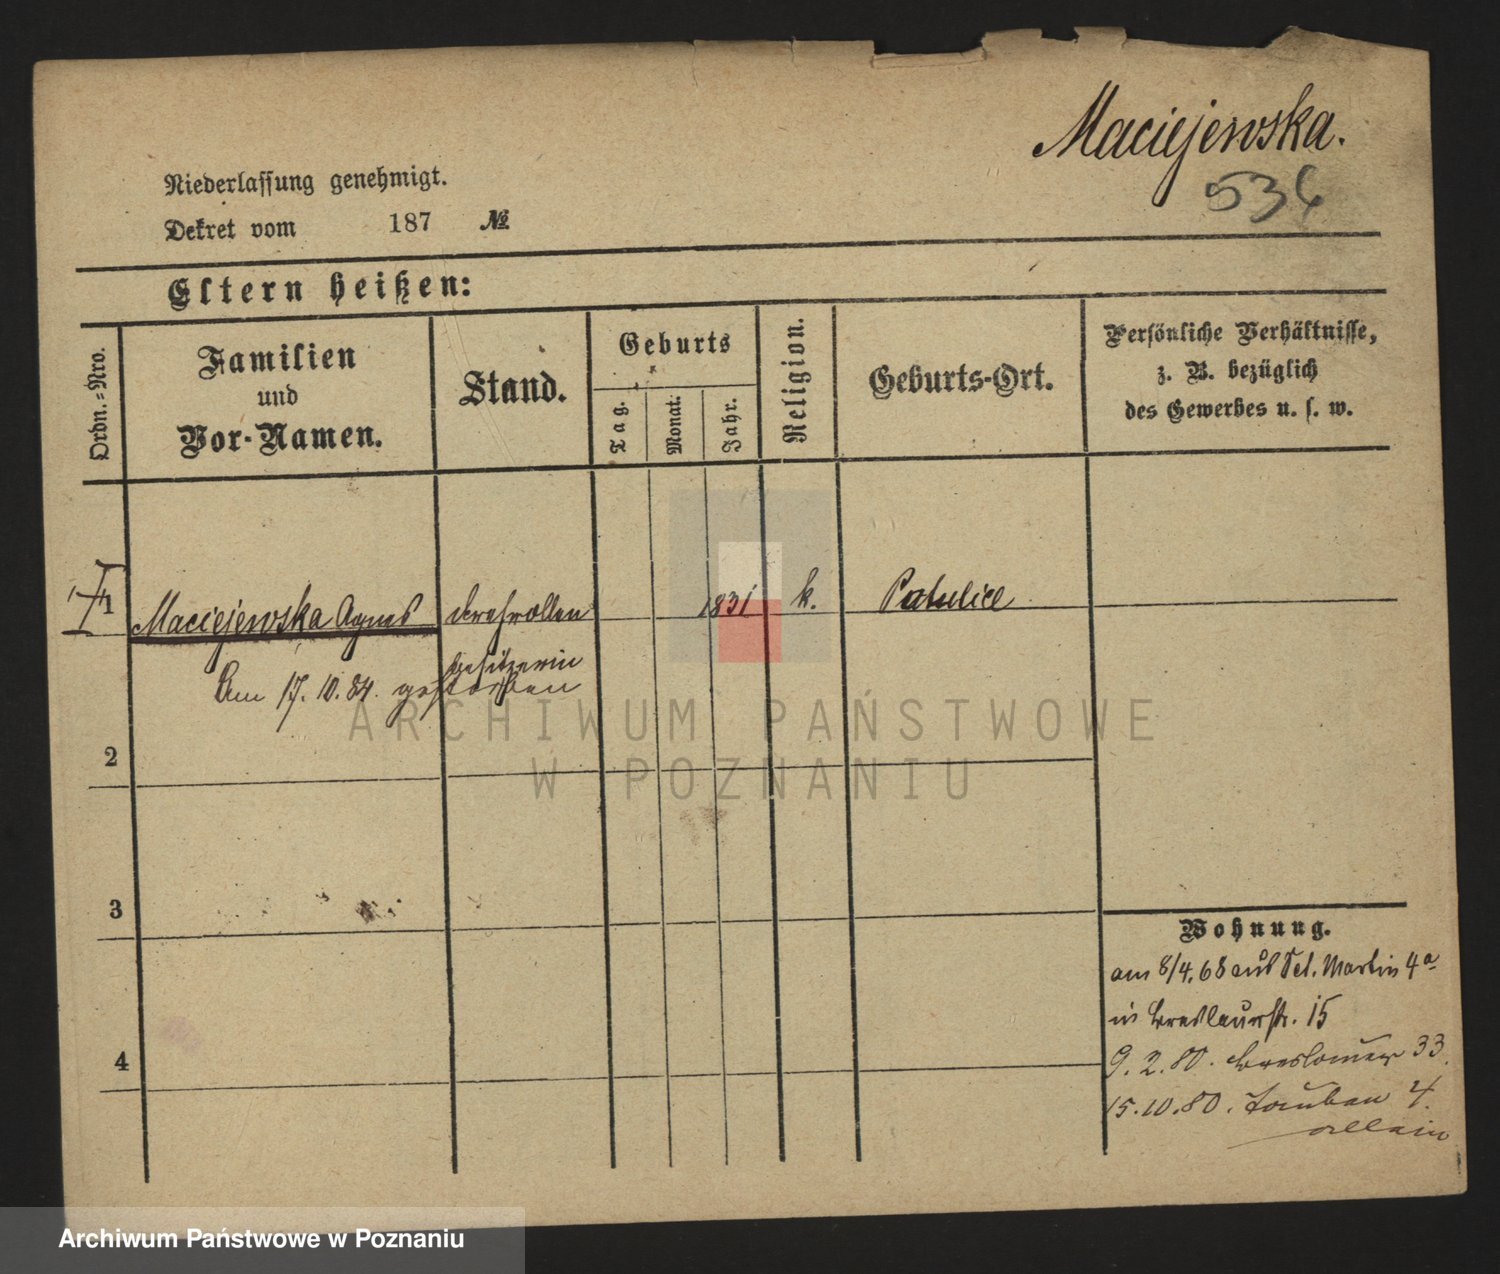 Maciejewska.
536
Niederlassung genehmigt.
Dekret vom 187 №
Eltern heißen:
Ordn.-Nro.
Familien
und
Vor-Namen.
Stand.
Geburts
Tag.
Monat.
Jahr.
Religion.
Geburts-Ort.
Persönliche Verhältnisse,
z. B. bezüglich
des Gewerbes u. s. w.
1 Maciejewska Agnes 1831 k.
besitzerin
Am 17.10.84. gestorben
2
3
4
Wohnung.
am 8/4.68 aus Sct. Martin 4a
in Breslauerstr. 15
9.2.80. Breslauer 33.
15.10.80. Tauben 4.
allein
ARCHIWUM PAŃSTWOWE
W POZNANIU
Archiwum Państwowe w Poznaniu